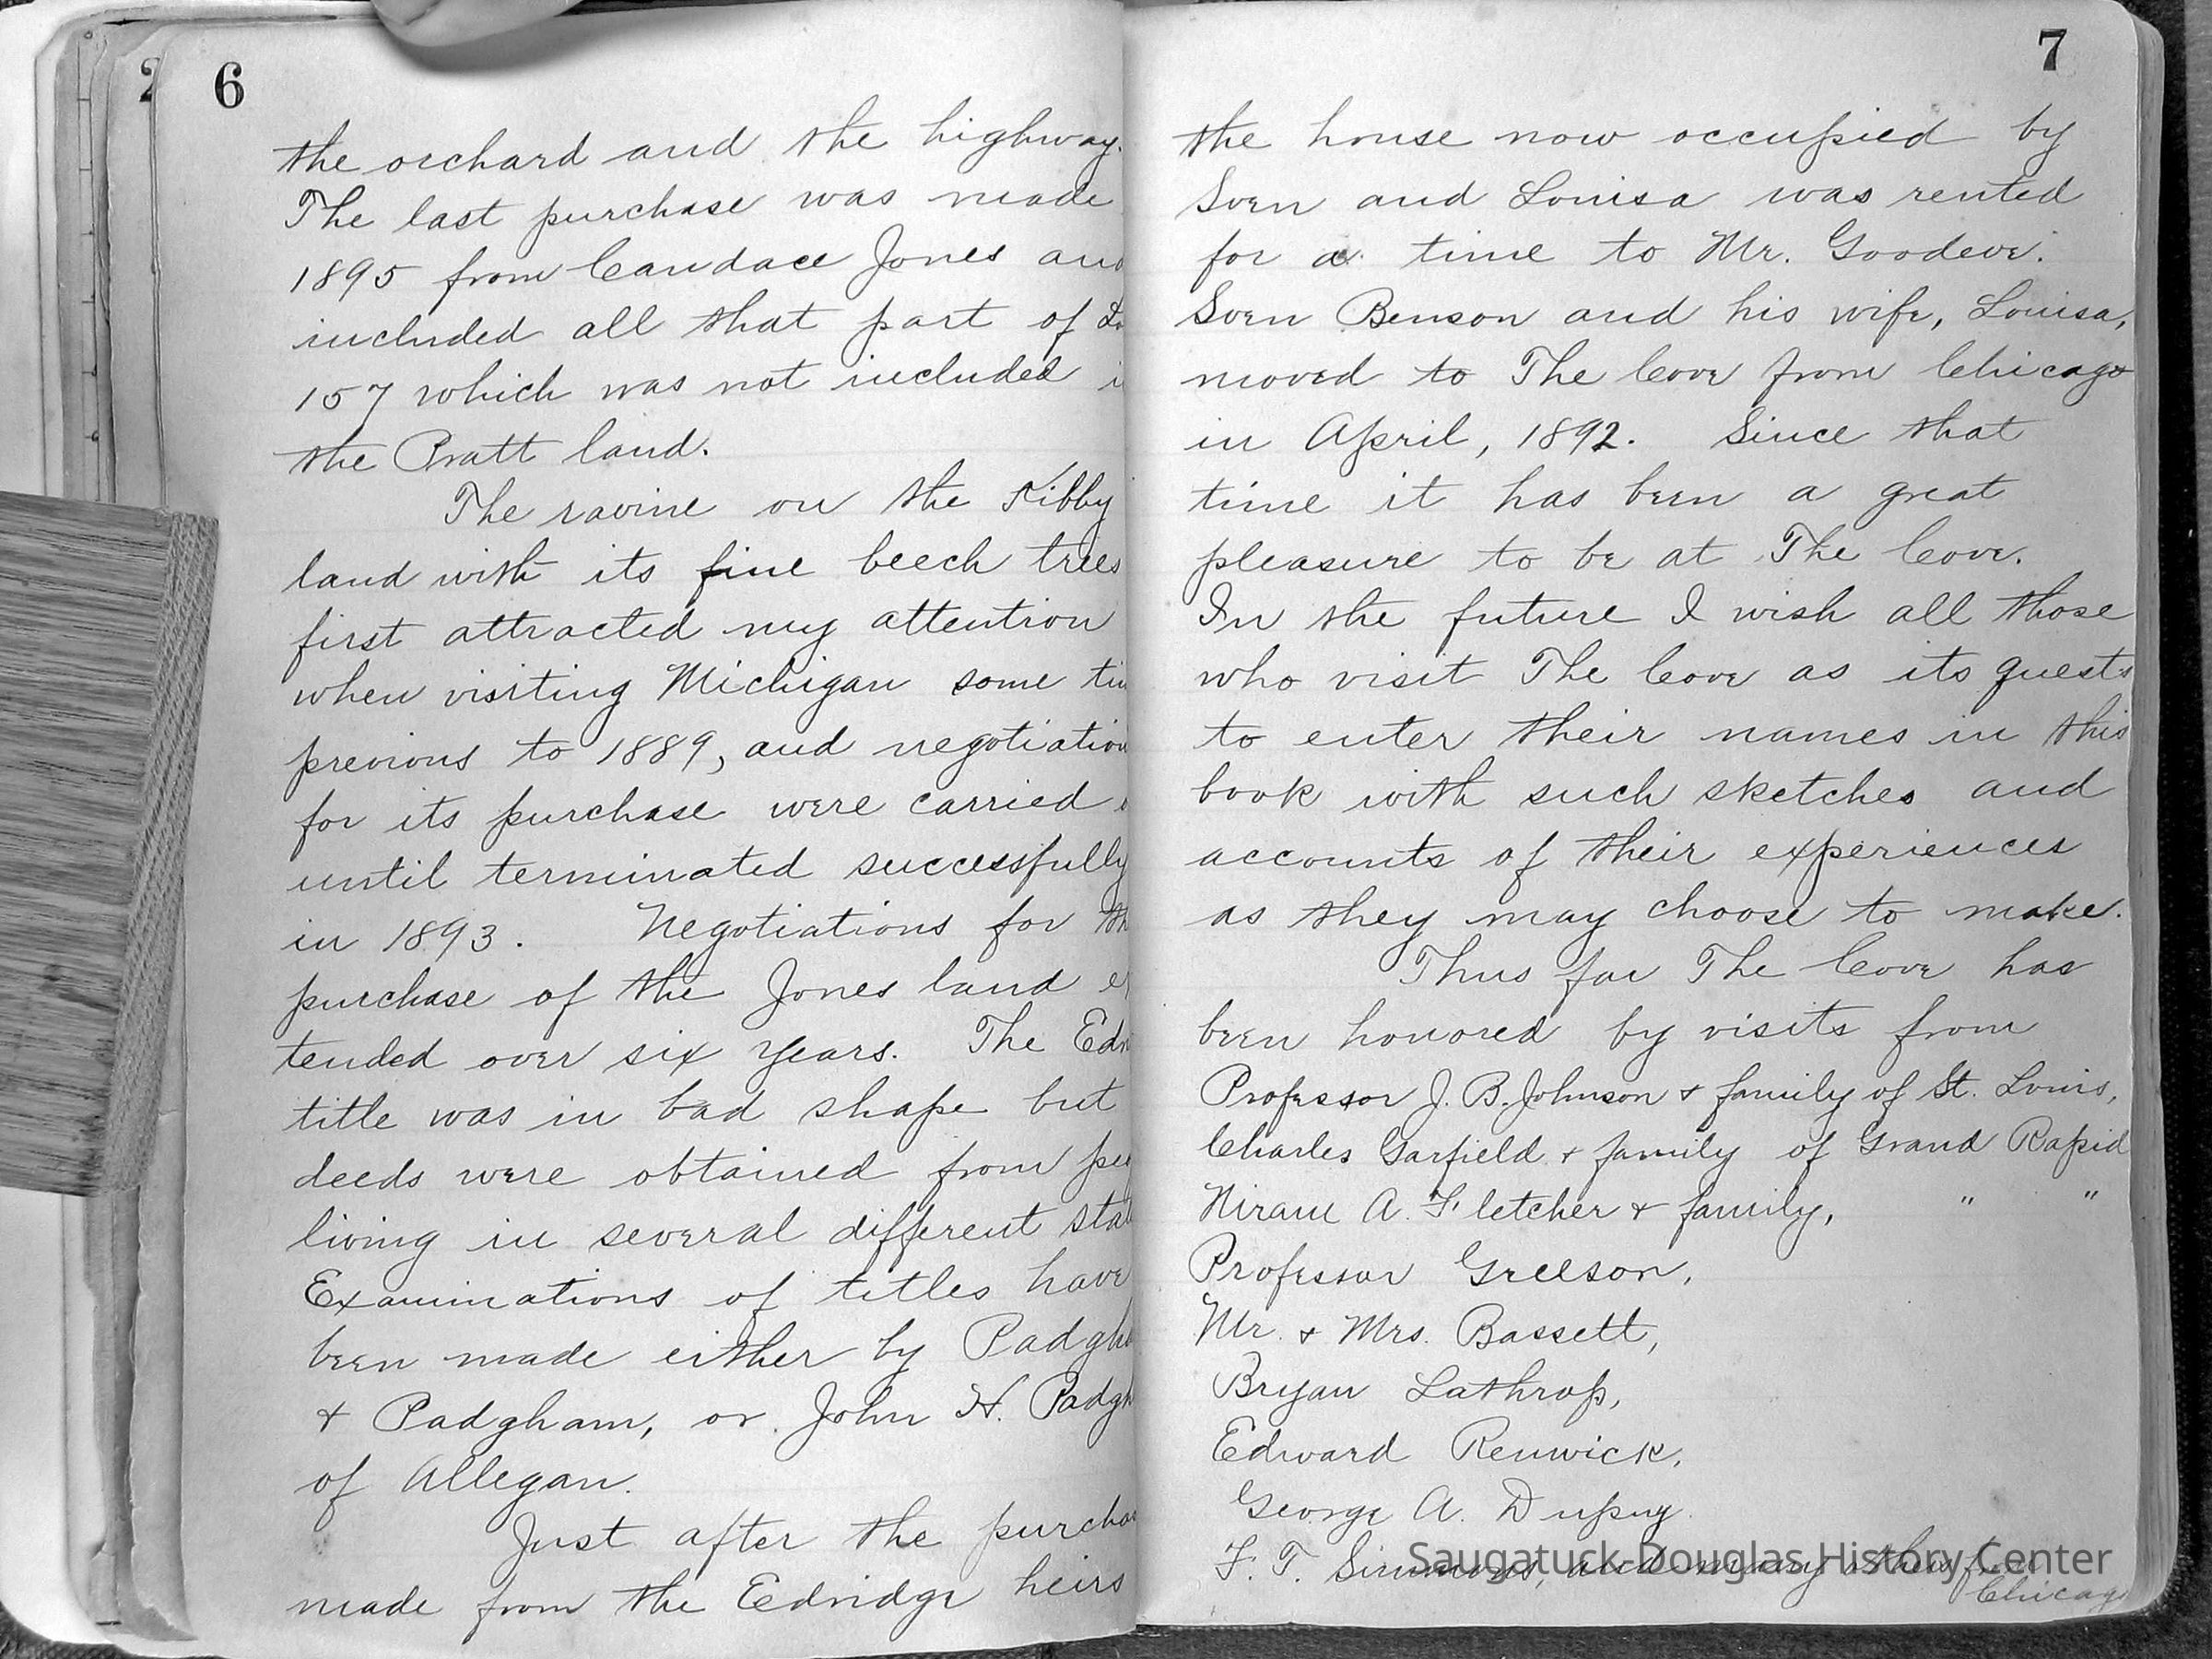 6
the orchard and the highway.
The last purchase was made
1895 from Candace Jones and
included all that part of Lo
157 which was not included i
the Pratt land.
The ravine on the Kibby
land with its fine beech trees
first attracted my attention
when visiting Michigan some tim
previous to 1889, and negotiation
for its purchase were carried o
until terminated successfully
in 1893. Negotiations for th
purchase of the Jones land ex
tended over six years. The Edri
title was in bad shape but
deeds were obtained from peo
living in several different stat
Examinations of titles have
been made either by Padgha
& Padgham, or John H. Padgh
of Allegan.
Just after the purchas
made from the Edridge heirs
7
the house now occupied by
Soen and Louisa was rented
for a time to Mr. Goodeve.
Soen Benson and his wife, Louisa,
moved to The Cove from Chicago
in April, 1892. Since that
time it has been a great
pleasure to be at The Cove.
In the future I wish all those
who visit The Cove as its guests
to enter their names in this
book with such sketches and
accounts of their experiences
as they may choose to make.
Thus far The Cove has
been honored by visits from
Professor J. B. Johnson & family of St. Louis,
Charles Garfield & family of Grand Rapid
Niram A. Fletcher & family, " "
Professor Greeson,
Mr. & Mrs. Bassett,
Bryan Lathrop,
Edward Renwick,
George A. Dupuy.
F. T. Simmons, and many others from
Chicago
Saugatuck-Douglas History Center
2